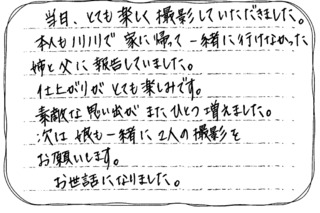 当日、とても楽しく撮影していただきました。
本人も川川で 家に帰って 一緒に行けなかった
姉と父に報告していました。
仕上がりが とても楽しみです。
素敵な思い出が またひとつ増えました。
次は 娘も一緒に 2人の撮影を
お願いします。
お世話になりました。